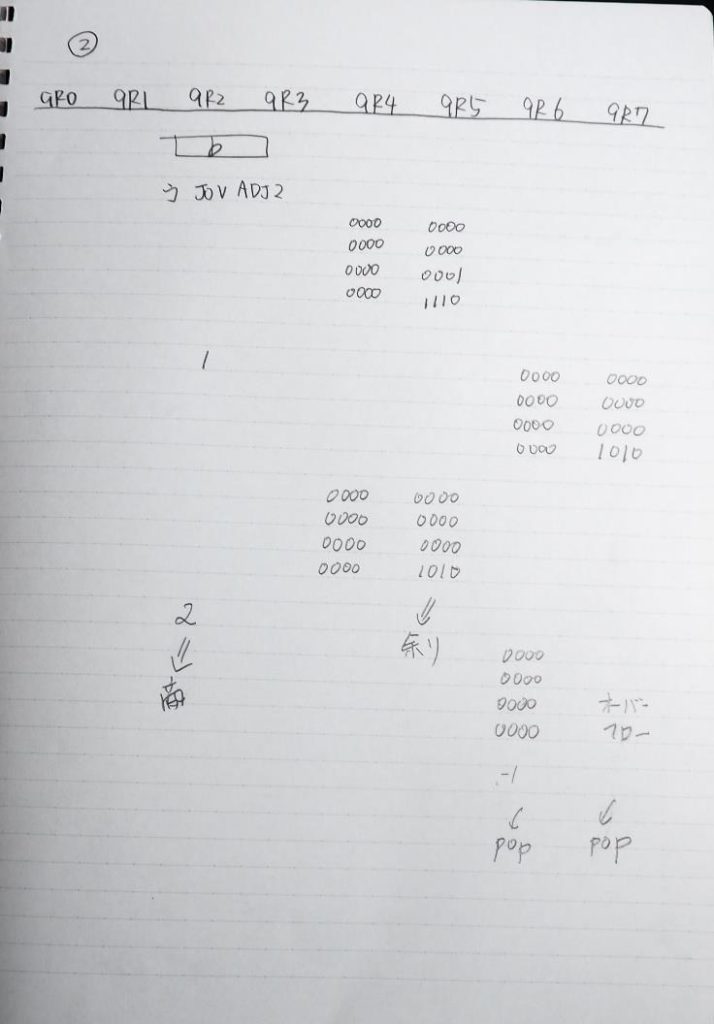 ②
GR0 GR1 GR2 GR3 GR4 GR5 GR6 GR7
b
→ JOV ADJ2
0000 0000
0000 0000
0000 0001
0000 1110
1
0000 0000
0000 0000
0000 0000
0000 1010
0000 0000
0000 0000
0000 0000
0000 1010
2 ⇓
⇓ 余り
商
0000
0000
0000 オーバー
0000 フロー
-1
↓ ↓
pop pop